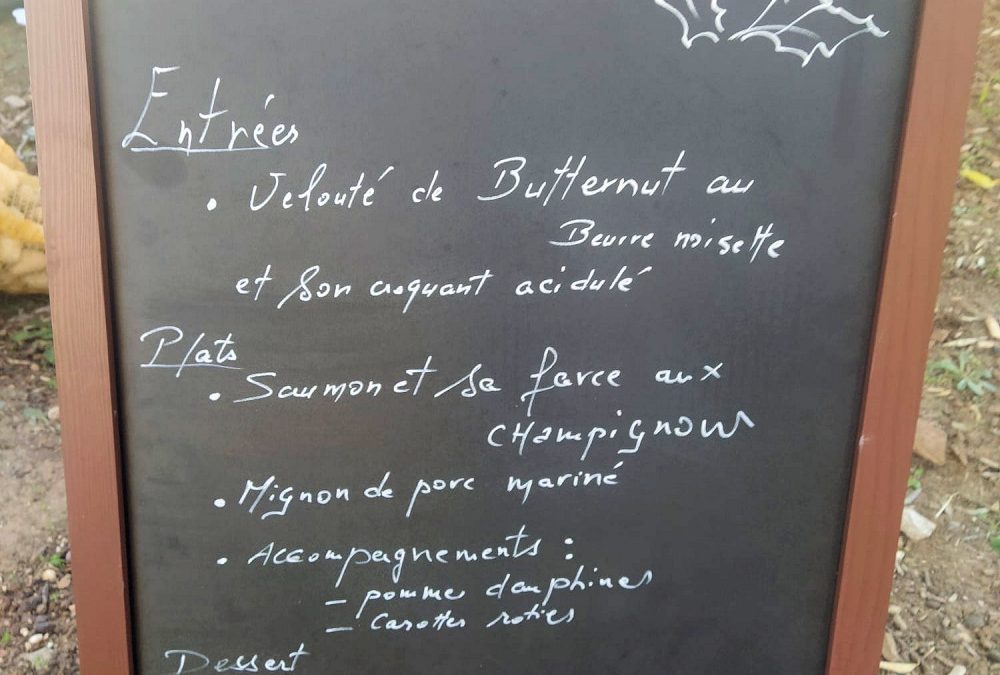 Entrées
• Velouté de Butternut au
Beurre noisette
et son croquant acidulé
Plats
• Saumon et sa farce aux
CHampignons
• Mignon de porc mariné
• Accompagnements :
- pomme dauphines
- Carottes roties
Dessert